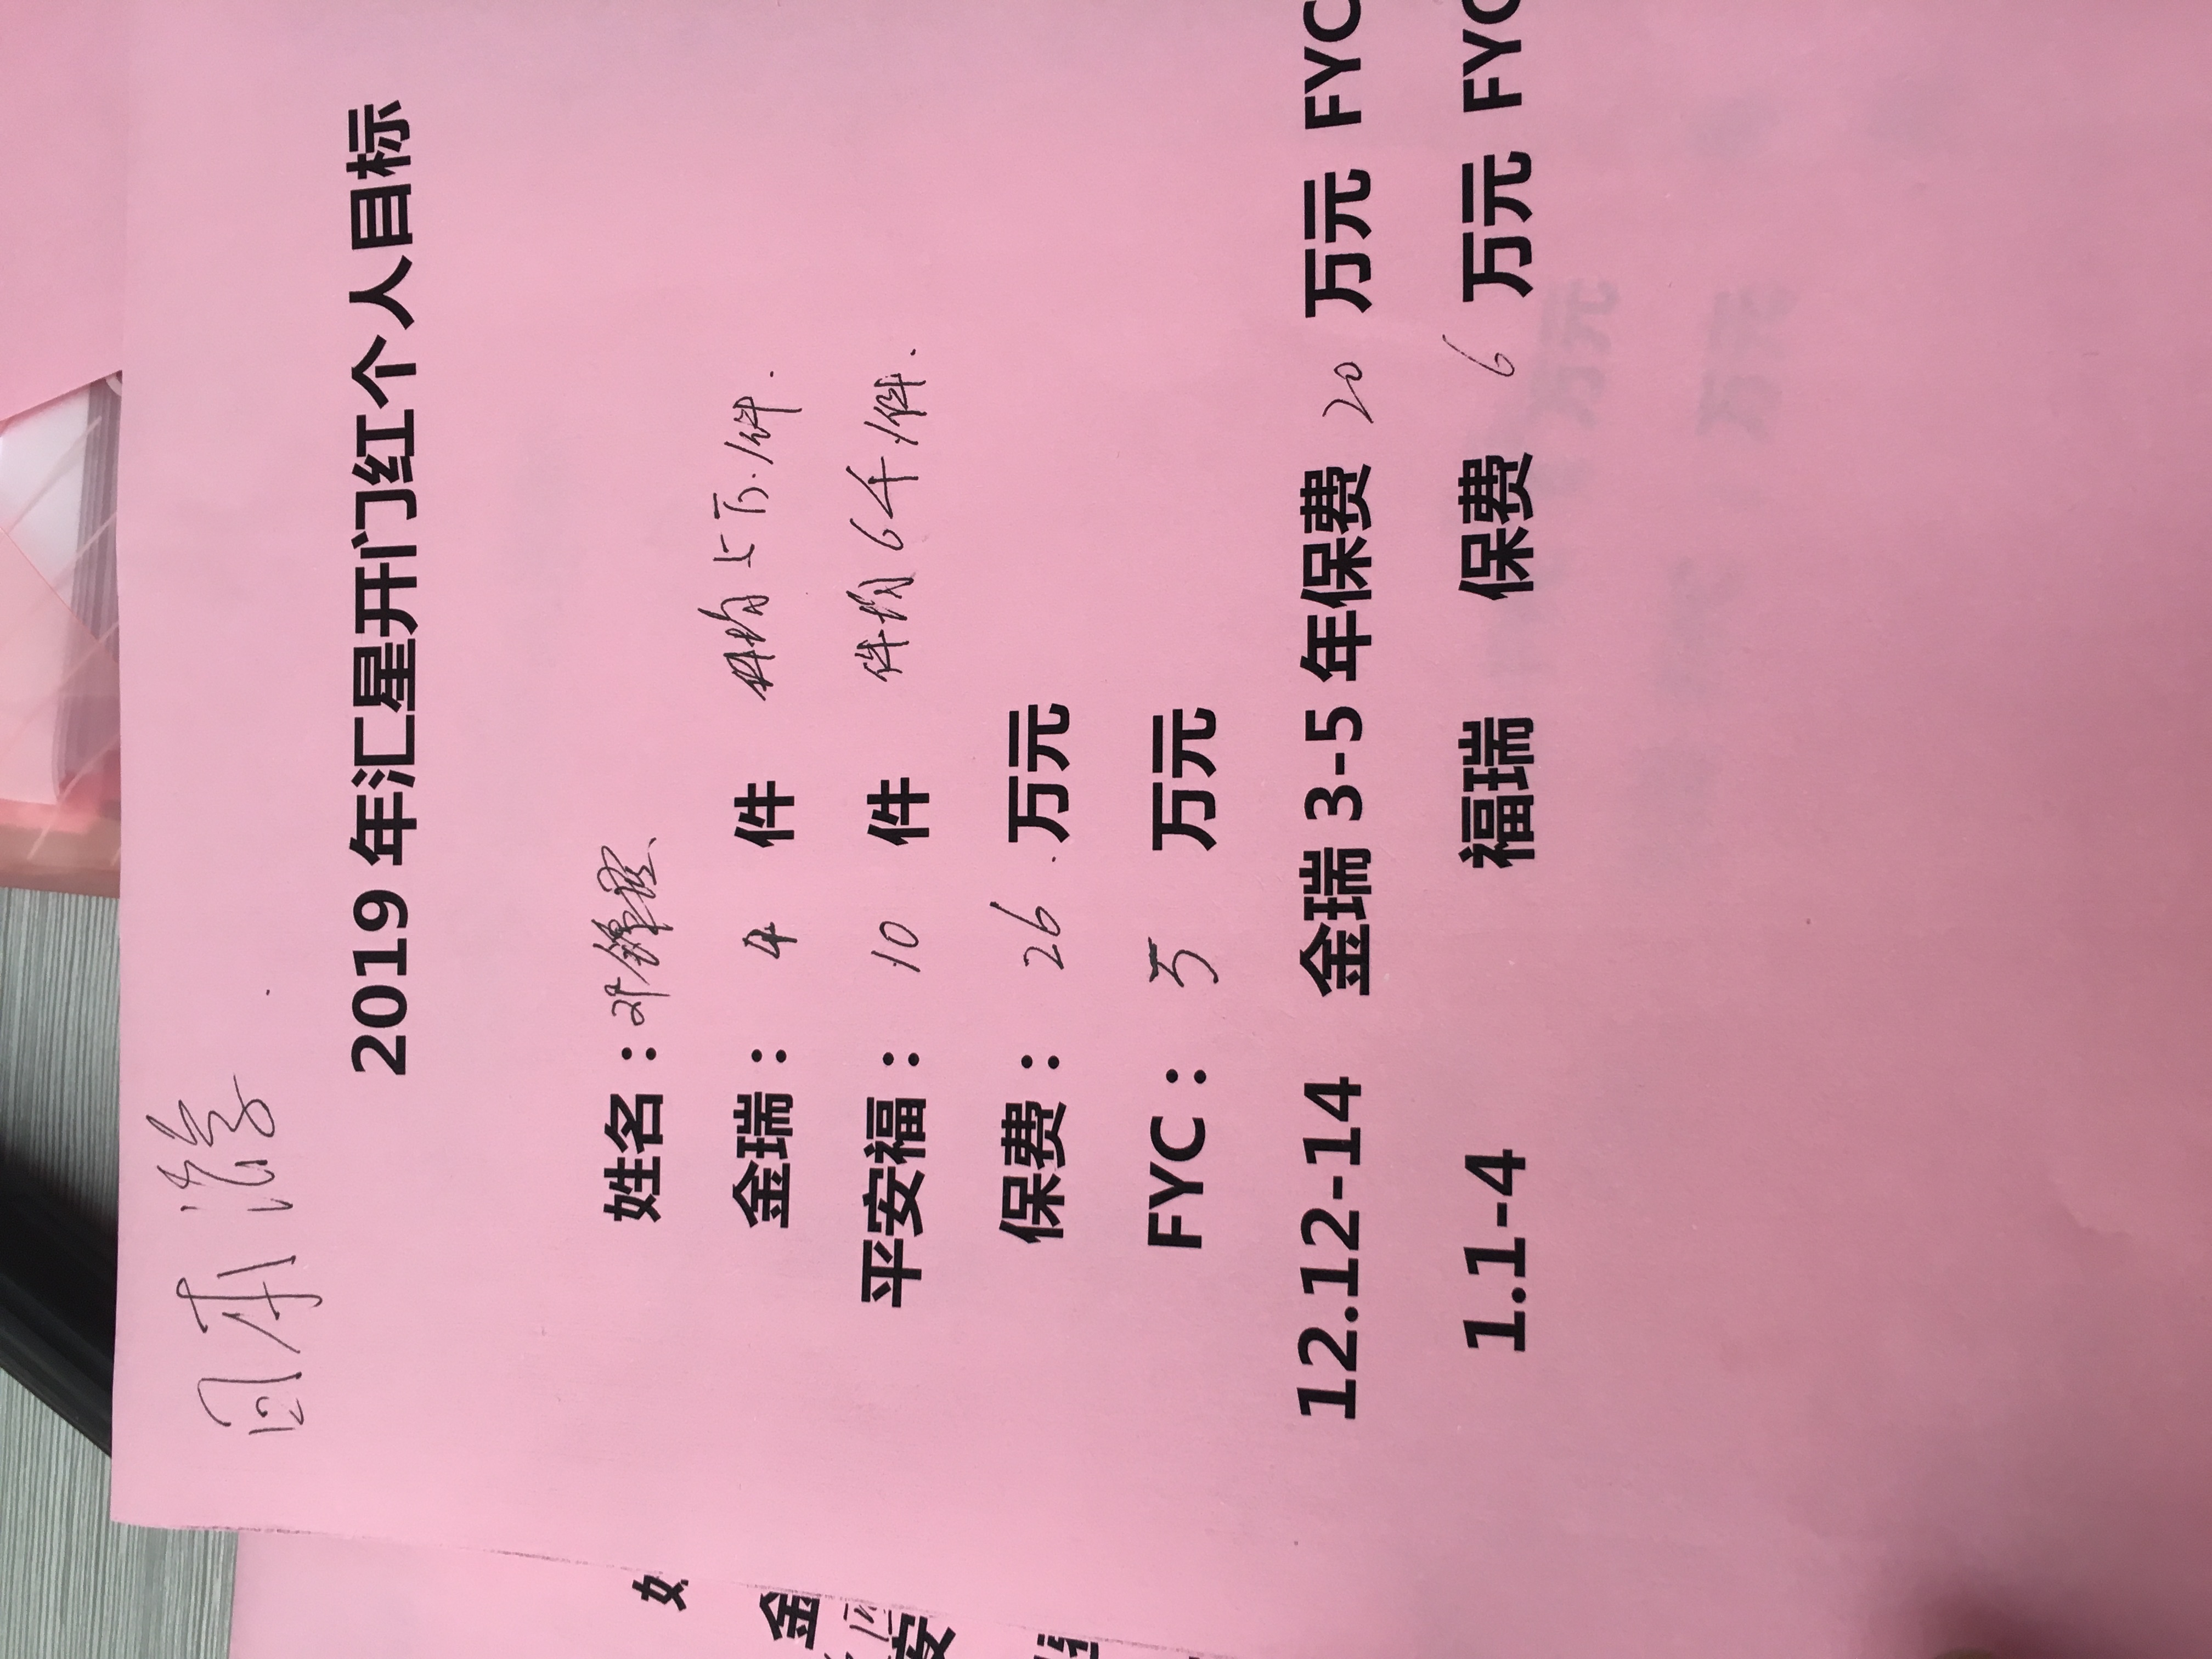 日本游
2019 年汇星开门红个人目标
姓名：
金瑞： 4 件 件均5万.1件.
平安福： 10 件 件均6千1件.
保费： 26 万元
FYC： 5 万元
12.12-14 金瑞 3-5 年保费 20 万元 FYC
1.1-4 福瑞 保费 6 万元 FYC
金
安